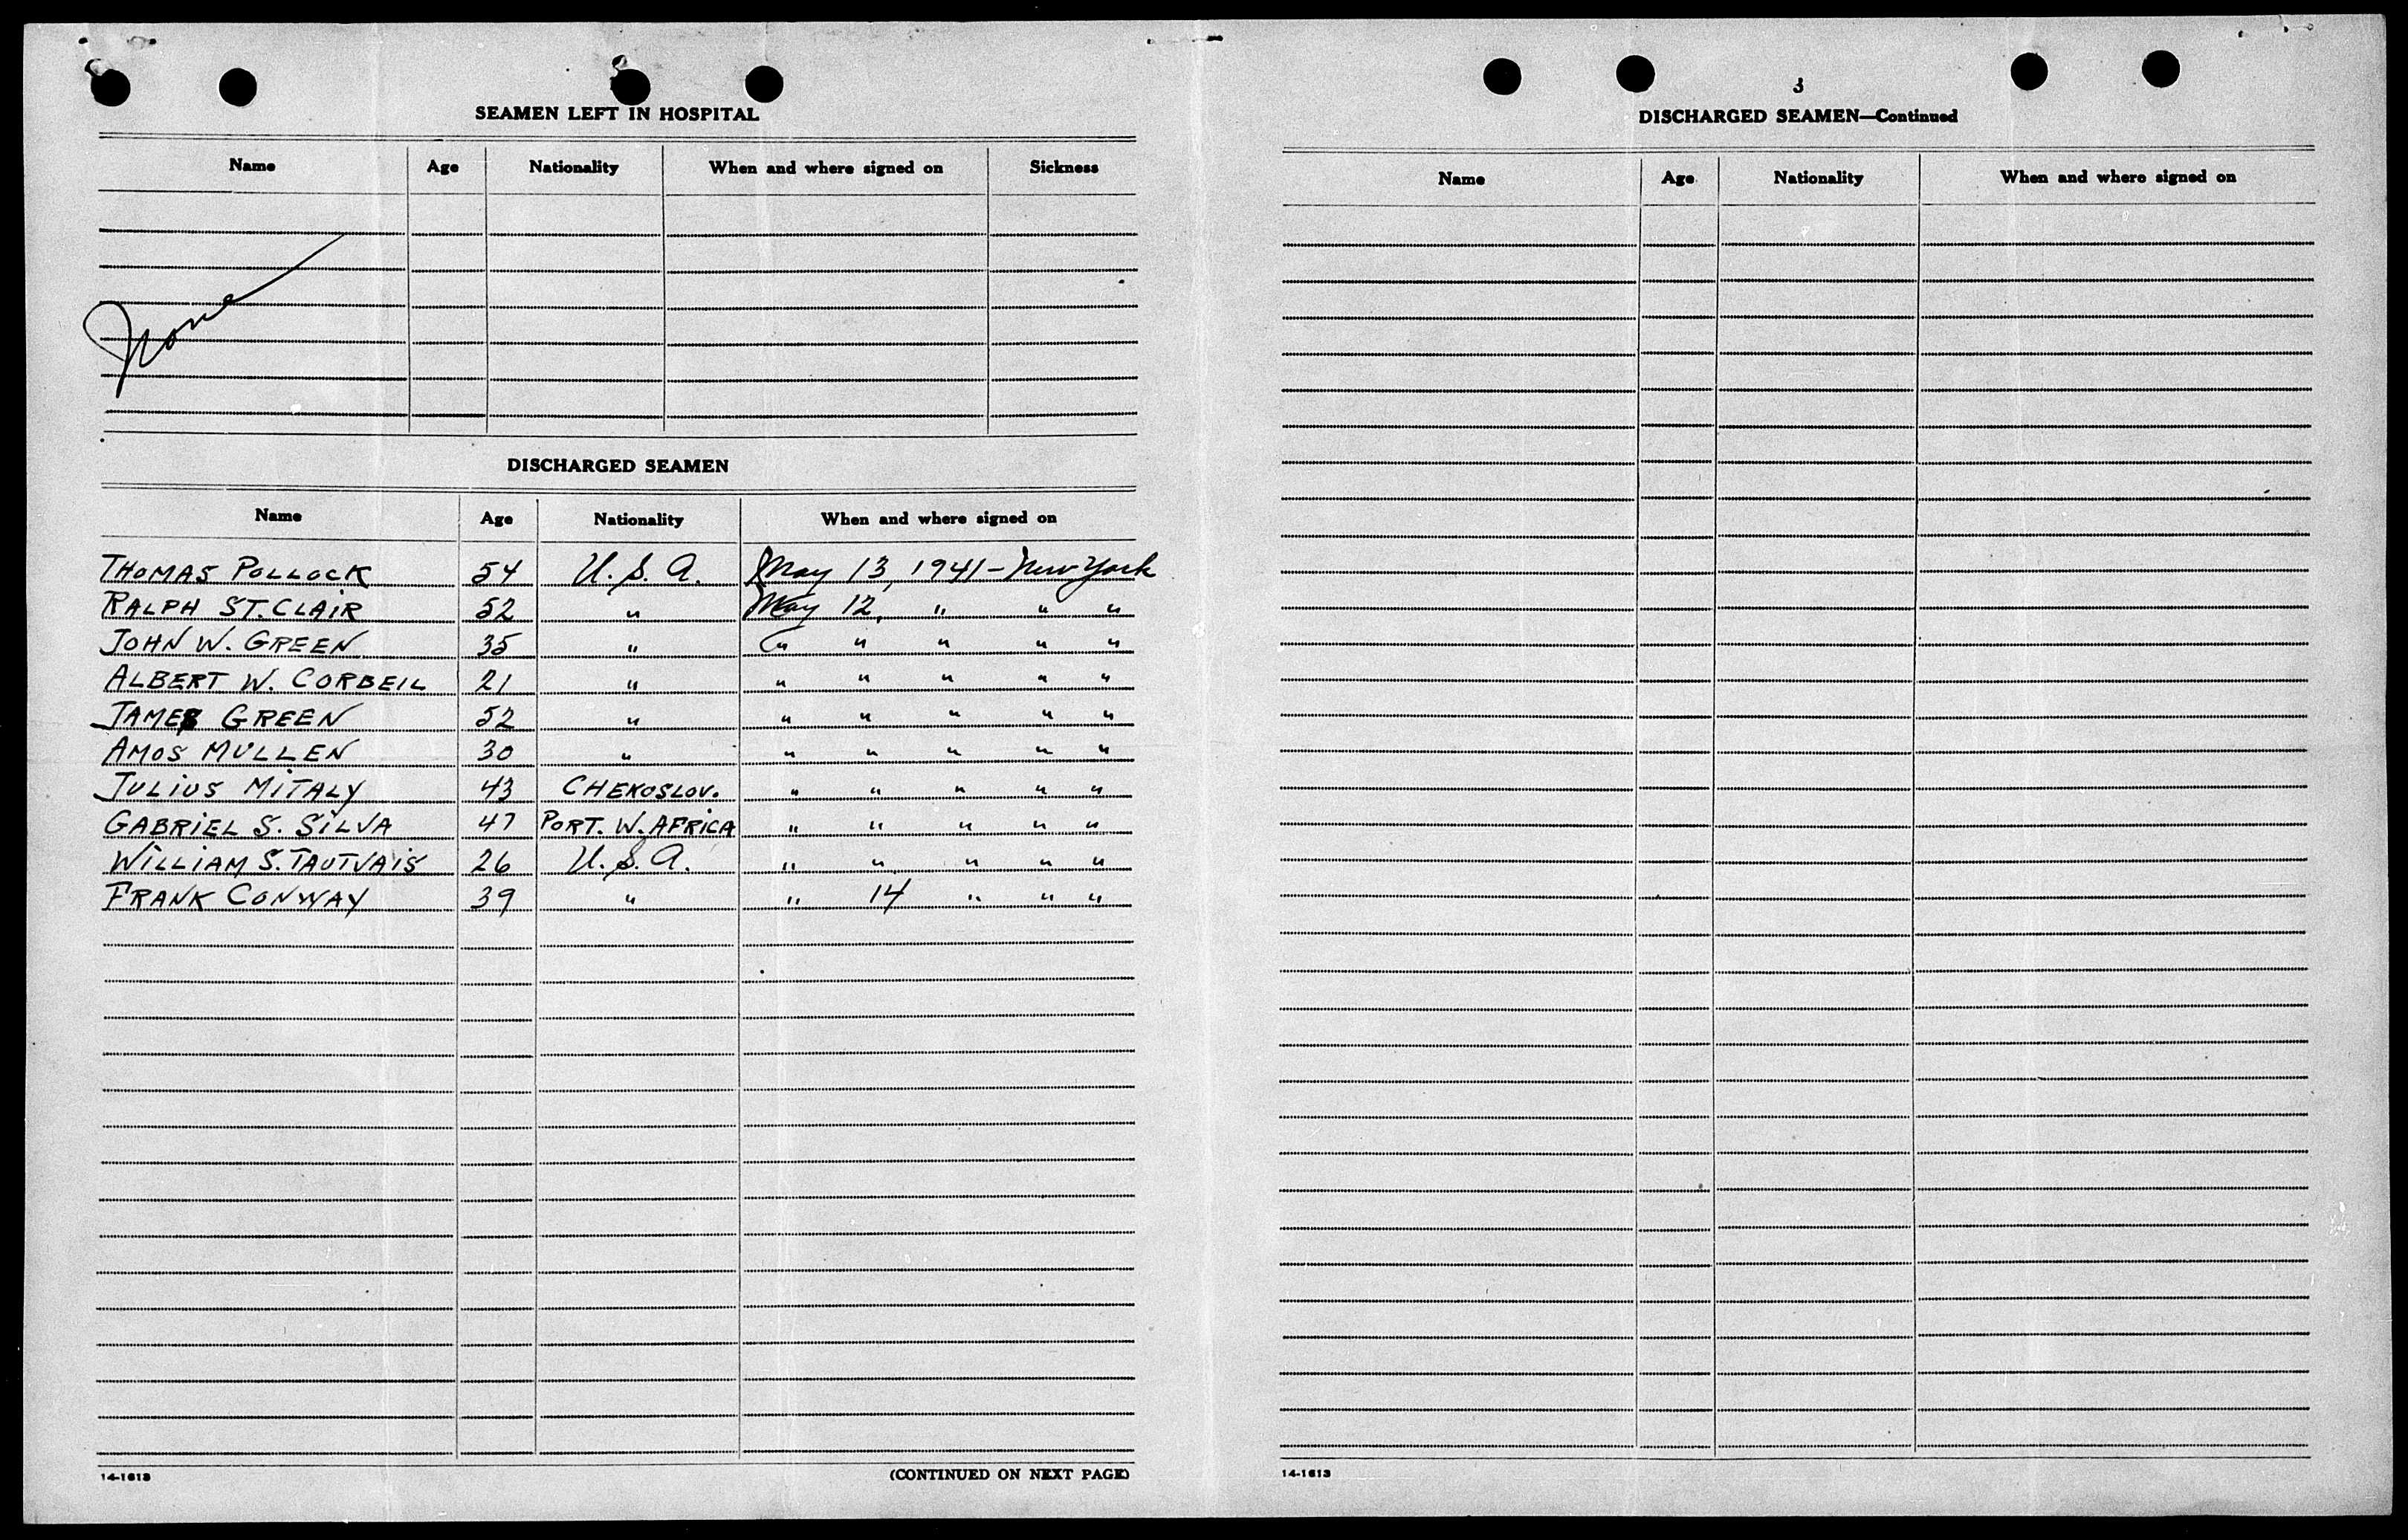 SEAMEN LEFT IN HOSPITAL
Name Age Nationality When and where signed on Sickness
None
DISCHARGED SEAMEN
Name Age Nationality When and where signed on
THOMAS POLLOCK 54 U.S.A. May 13, 1941 - New York
RALPH ST. CLAIR 52 " May 12, " " "
JOHN W. GREEN 35 " " " " " "
ALBERT W. CORBEIL 21 " " " " " "
JAMES GREEN 52 " " " " " "
AMOS MULLEN 30 " " " " " "
JULIUS MITALY 43 CHEKOSLOV. " " " " "
GABRIEL S. SILVA 47 PORT. W. AFRICA " " " " "
WILLIAM S. TAUTVAIS 26 U.S.A. " " " " "
FRANK CONWAY 39 " " 14 " " "
14-1613 (CONTINUED ON NEXT PAGE)
3
DISCHARGED SEAMEN—Continued
Name Age Nationality When and where signed on
14-1613